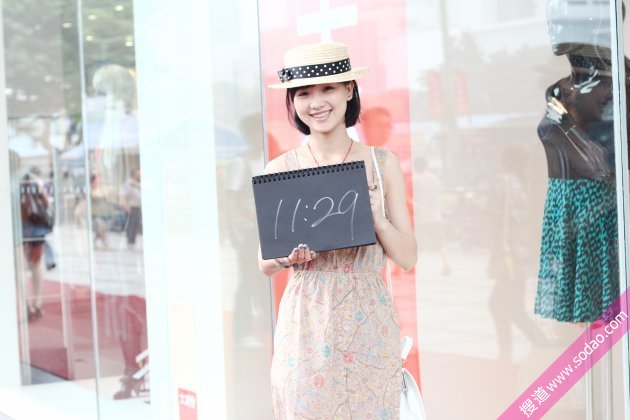 11:29
搜道 www.sodao.com